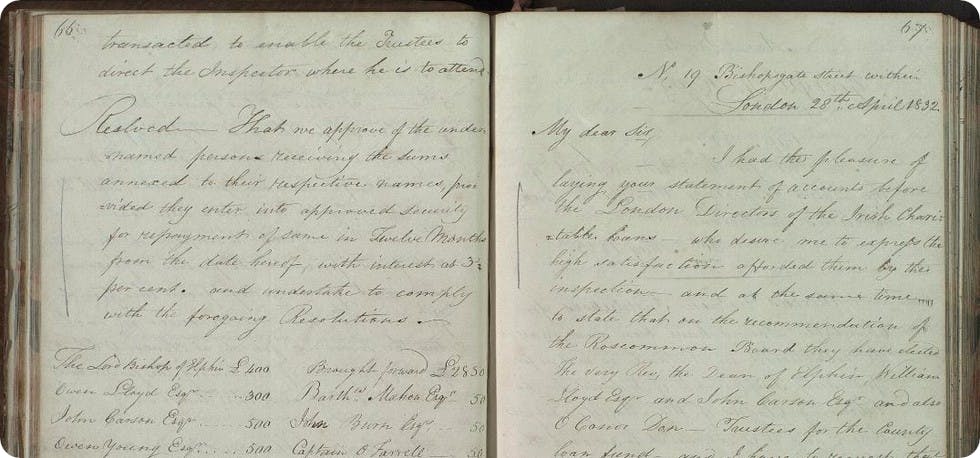 66
transacted to enable the Trustees to
direct the Inspector where he is to attend
Resolved That we approve of the under
named persons receiving the sums
annexed to their respective names, pro
=vided they enter into approved security
for repayment of same in Twelve Months
from the date hereof, with interest at 3
per cent. and undertake to comply
with the foregoing Resolutions.
The Lord Bishop of Elphin £400 Brought forward £2850
Owen Lloyd Esqr 300 Barthw Mahon Esqr 50
John Carson Esqr 500 John Burn Esqr 50
Owen Young Esqr 500 Captain O'Farrell 50
67
No 19 Bishopsgate Street within
London 28th April 1832
My dear Sir,
I had the pleasure of
laying your statement of accounts before
the London Directors of the Irish Chari
=table Loans - who desire me to express the
high satisfaction afforded them by the
inspection - and at the same time
to state that on the recommendation of
the Roscommon Board they have elected
The Very Rev. the Dean of Elphin, William
Lloyd Esqr and John Carson Esqr and also
O'Conor Don - Trustees for the County
loan fund - and I have to request that